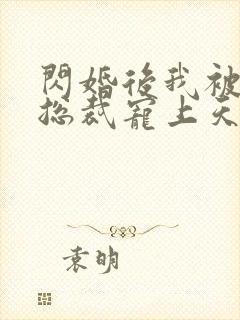 閃婚後我被
總裁寵上天
袁明